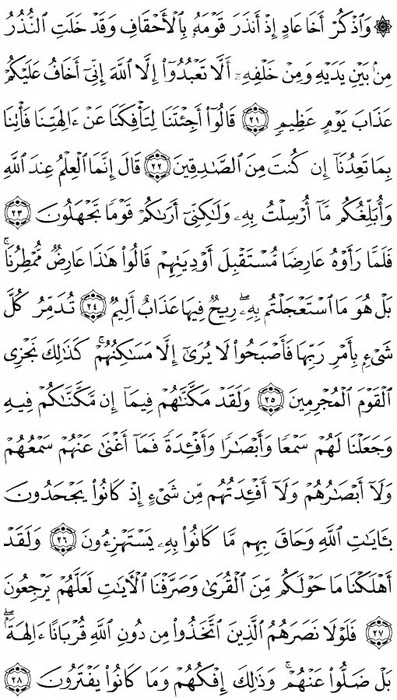 ۞ وَٱذۡكُرۡ أَخَا عَادٍ إِذۡ أَنذَرَ قَوۡمَهُۥ بِٱلۡأَحۡقَافِ وَقَدۡ خَلَتِ ٱلنُّذُرُ
مِنۢ بَيۡنِ يَدَيۡهِ وَمِنۡ خَلۡفِهِۦٓ أَلَّا تَعۡبُدُوٓاْ إِلَّا ٱللَّهَ إِنِّيٓ أَخَافُ عَلَيۡكُمۡ
عَذَابَ يَوۡمٍ عَظِيمٖ ٢١ قَالُوٓاْ أَجِئۡتَنَا لِتَأۡفِكَنَا عَنۡ ءَالِهَتِنَا فَأۡتِنَا
بِمَا تَعِدُنَآ إِن كُنتَ مِنَ ٱلصَّٰدِقِينَ ٢٢ قَالَ إِنَّمَا ٱلۡعِلۡمُ عِندَ ٱللَّهِ
وَأُبَلِّغُكُم مَّآ أُرۡسِلۡتُ بِهِۦ وَلَٰكِنِّيٓ أَرَىٰكُمۡ قَوۡمٗا تَجۡهَلُونَ ٢٣
فَلَمَّا رَأَوۡهُ عَارِضٗا مُّسۡتَقۡبِلَ أَوۡدِيَتِهِمۡ قَالُواْ هَٰذَا عَارِضٞ مُّمۡطِرُنَاۚ
بَلۡ هُوَ مَا ٱسۡتَعۡجَلۡتُم بِهِۦۖ رِيحٞ فِيهَا عَذَابٌ أَلِيمٞ ٢٤ تُدَمِّرُ كُلَّ
شَيۡءِۭ بِأَمۡرِ رَبِّهَا فَأَصۡبَحُواْ لَا يُرَىٰٓ إِلَّا مَسَٰكِنُهُمۡۚ كَذَٰلِكَ نَجۡزِي
ٱلۡقَوۡمَ ٱلۡمُجۡرِمِينَ ٢٥ وَلَقَدۡ مَكَّنَّٰهُمۡ فِيمَآ إِن مَّكَّنَّٰكُمۡ فِيهِ
وَجَعَلۡنَا لَهُمۡ سَمۡعٗا وَأَبۡصَٰرٗا وَأَفۡـِٔدَةٗ فَمَآ أَغۡنَىٰ عَنۡهُمۡ سَمۡعُهُمۡ
وَلَآ أَبۡصَٰرُهُمۡ وَلَآ أَفۡـِٔدَتُهُم مِّن شَيۡءٍ إِذۡ كَانُواْ يَجۡحَدُونَ
بِـَٔايَٰتِ ٱللَّهِ وَحَاقَ بِهِم مَّا كَانُواْ بِهِۦ يَسۡتَهۡزِءُونَ ٢٦ وَلَقَدۡ
أَهۡلَكۡنَا مَا حَوۡلَكُم مِّنَ ٱلۡقُرَىٰ وَصَرَّفۡنَا ٱلۡأٓيَٰتِ لَعَلَّهُمۡ يَرۡجِعُونَ
٢٧ فَلَوۡلَا نَصَرَهُمُ ٱلَّذِينَ ٱتَّخَذُواْ مِن دُونِ ٱللَّهِ قُرۡبَانًا ءَالِهَةَۢۖ
بَلۡ ضَلُّواْ عَنۡهُمۡۚ وَذَٰلِكَ إِفۡكُهُمۡ وَمَا كَانُواْ يَفۡتَرُونَ ٢٨